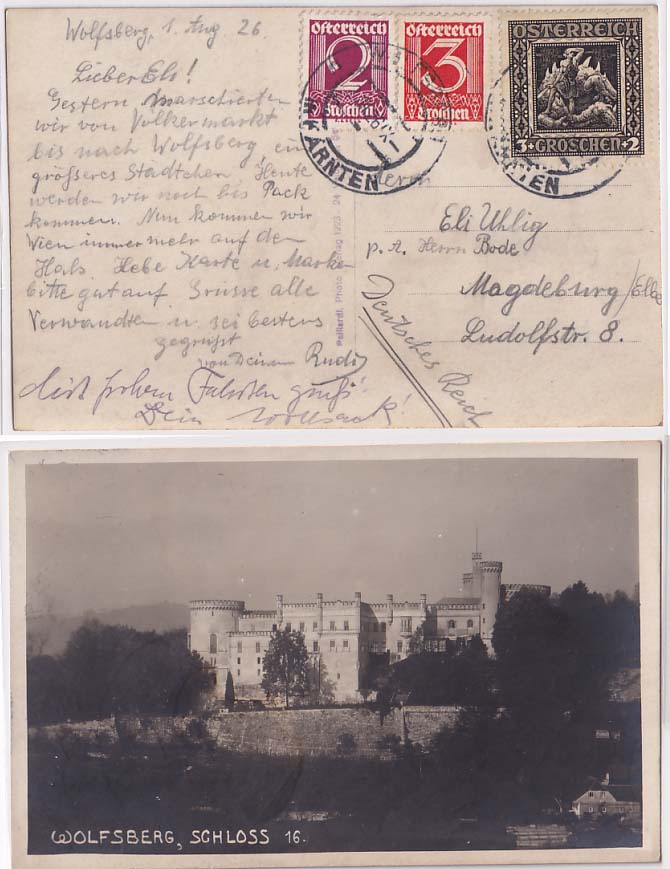 Wolfsberg, 1. Aug. 26.
Lieber Eli!
Gestern marschierten
wir von Völkermarkt
bis nach Wolfsberg, ein
größeres Städtchen. Heute
werden wir noch bis Pack
kommen. Nun kommen wir
Wien immer mehr auf den
Hals. Hebe Karte u. Marken
bitte gut auf. Grüsse alle
Verwandten u. sei bestens
gegrüßt
von Deinem Rudi
Mit frohem Fahrten gruß!
Dein
Österreich
2
Groschen
Österreich
3
Groschen
ÖSTERREICH
3+GROSCHEN+2
KÄRNTEN
KÄRNTEN
Herrn
Eli Uhlig
p. A. Herrn Bode
Magdeburg/Elbe
Ludolfstr. 8.
Deutsches Reich
Photo 1923 - 24
WOLFSBERG, SCHLOSS 16.